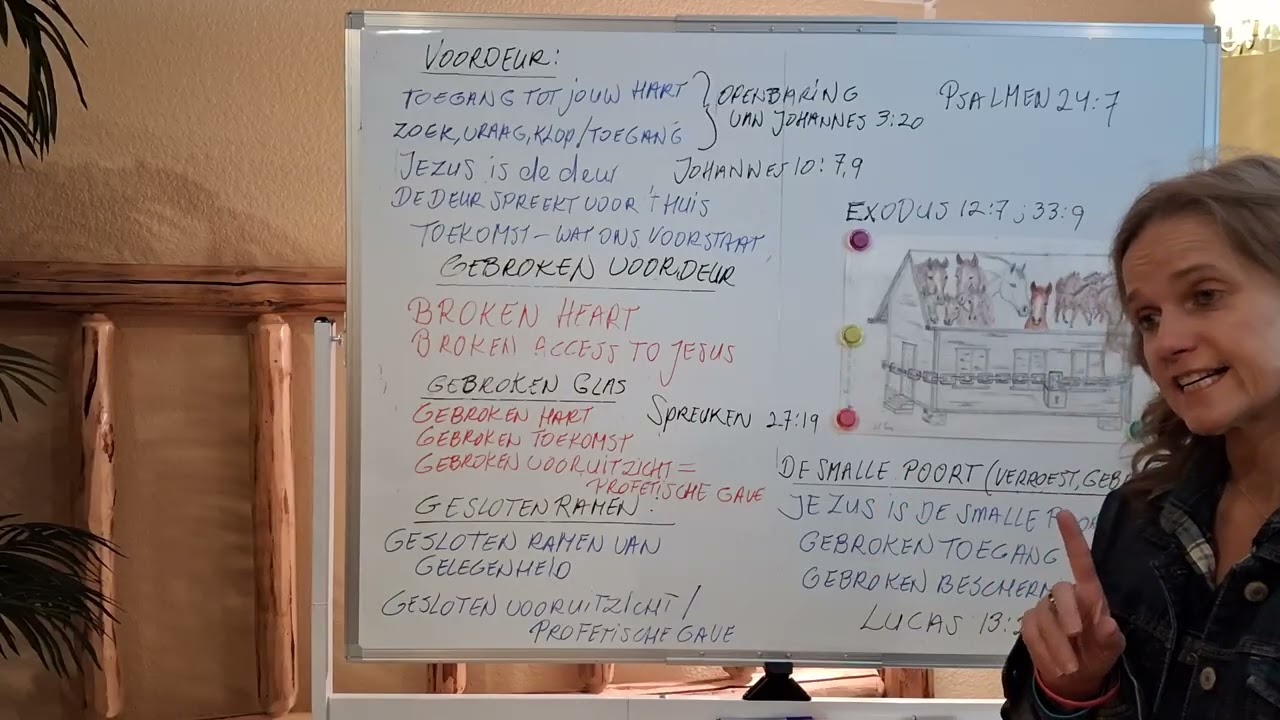 VOORDEUR:
TOEGANG TOT JOUW HART
ZOEK, VRAAG, KLOP/TOEGANG
OPENBARING
VAN JOHANNES 3:20
JEZUS is de deur JOHANNES 10:7,9
DE DEUR SPREEKT VOOR 'T HUIS
TOEKOMST - WAT ONS VOORSTAAT
GEBROKEN VOORDEUR
BROKEN HEART
BROKEN ACCESS TO JESUS
GEBROKEN GLAS
GEBROKEN HART SPREUKEN 27:19
GEBROKEN TOEKOMST
GEBROKEN VOORUITZICHT =
PROFETISCHE GAVE
GESLOTEN RAMEN:
GESLOTEN RAMEN VAN
GELEGENHEID
GESLOTEN VOORUITZICHT/
PROFETISCHE GAVE
PSALMEN 24:7
EXODUS 12:7; 33:9
DE SMALLE POORT (VERROEST, GEB
JEZUS IS DE SMALLE
GEBROKEN TOEGANG
GEBROKEN BESCHERM
LUCAS 13: